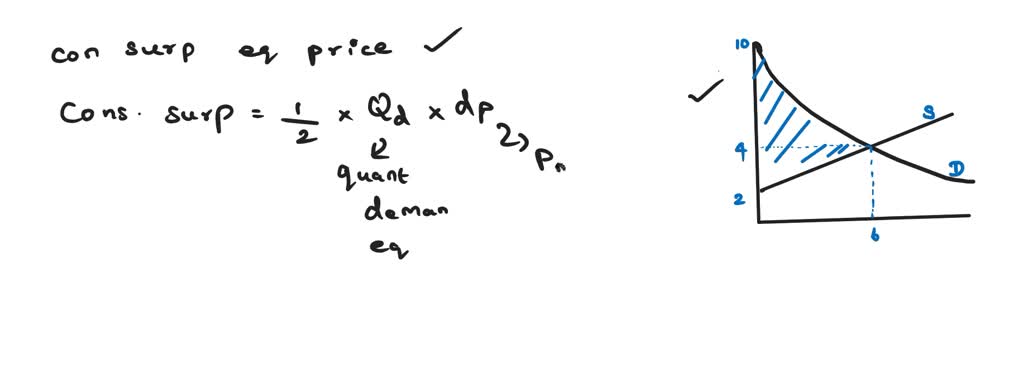 con surp eq price ✓
Cons. surp = 1/2 × Qd × dp
Pn
quant
deman
eq
✓
10
S
4
D
2
6